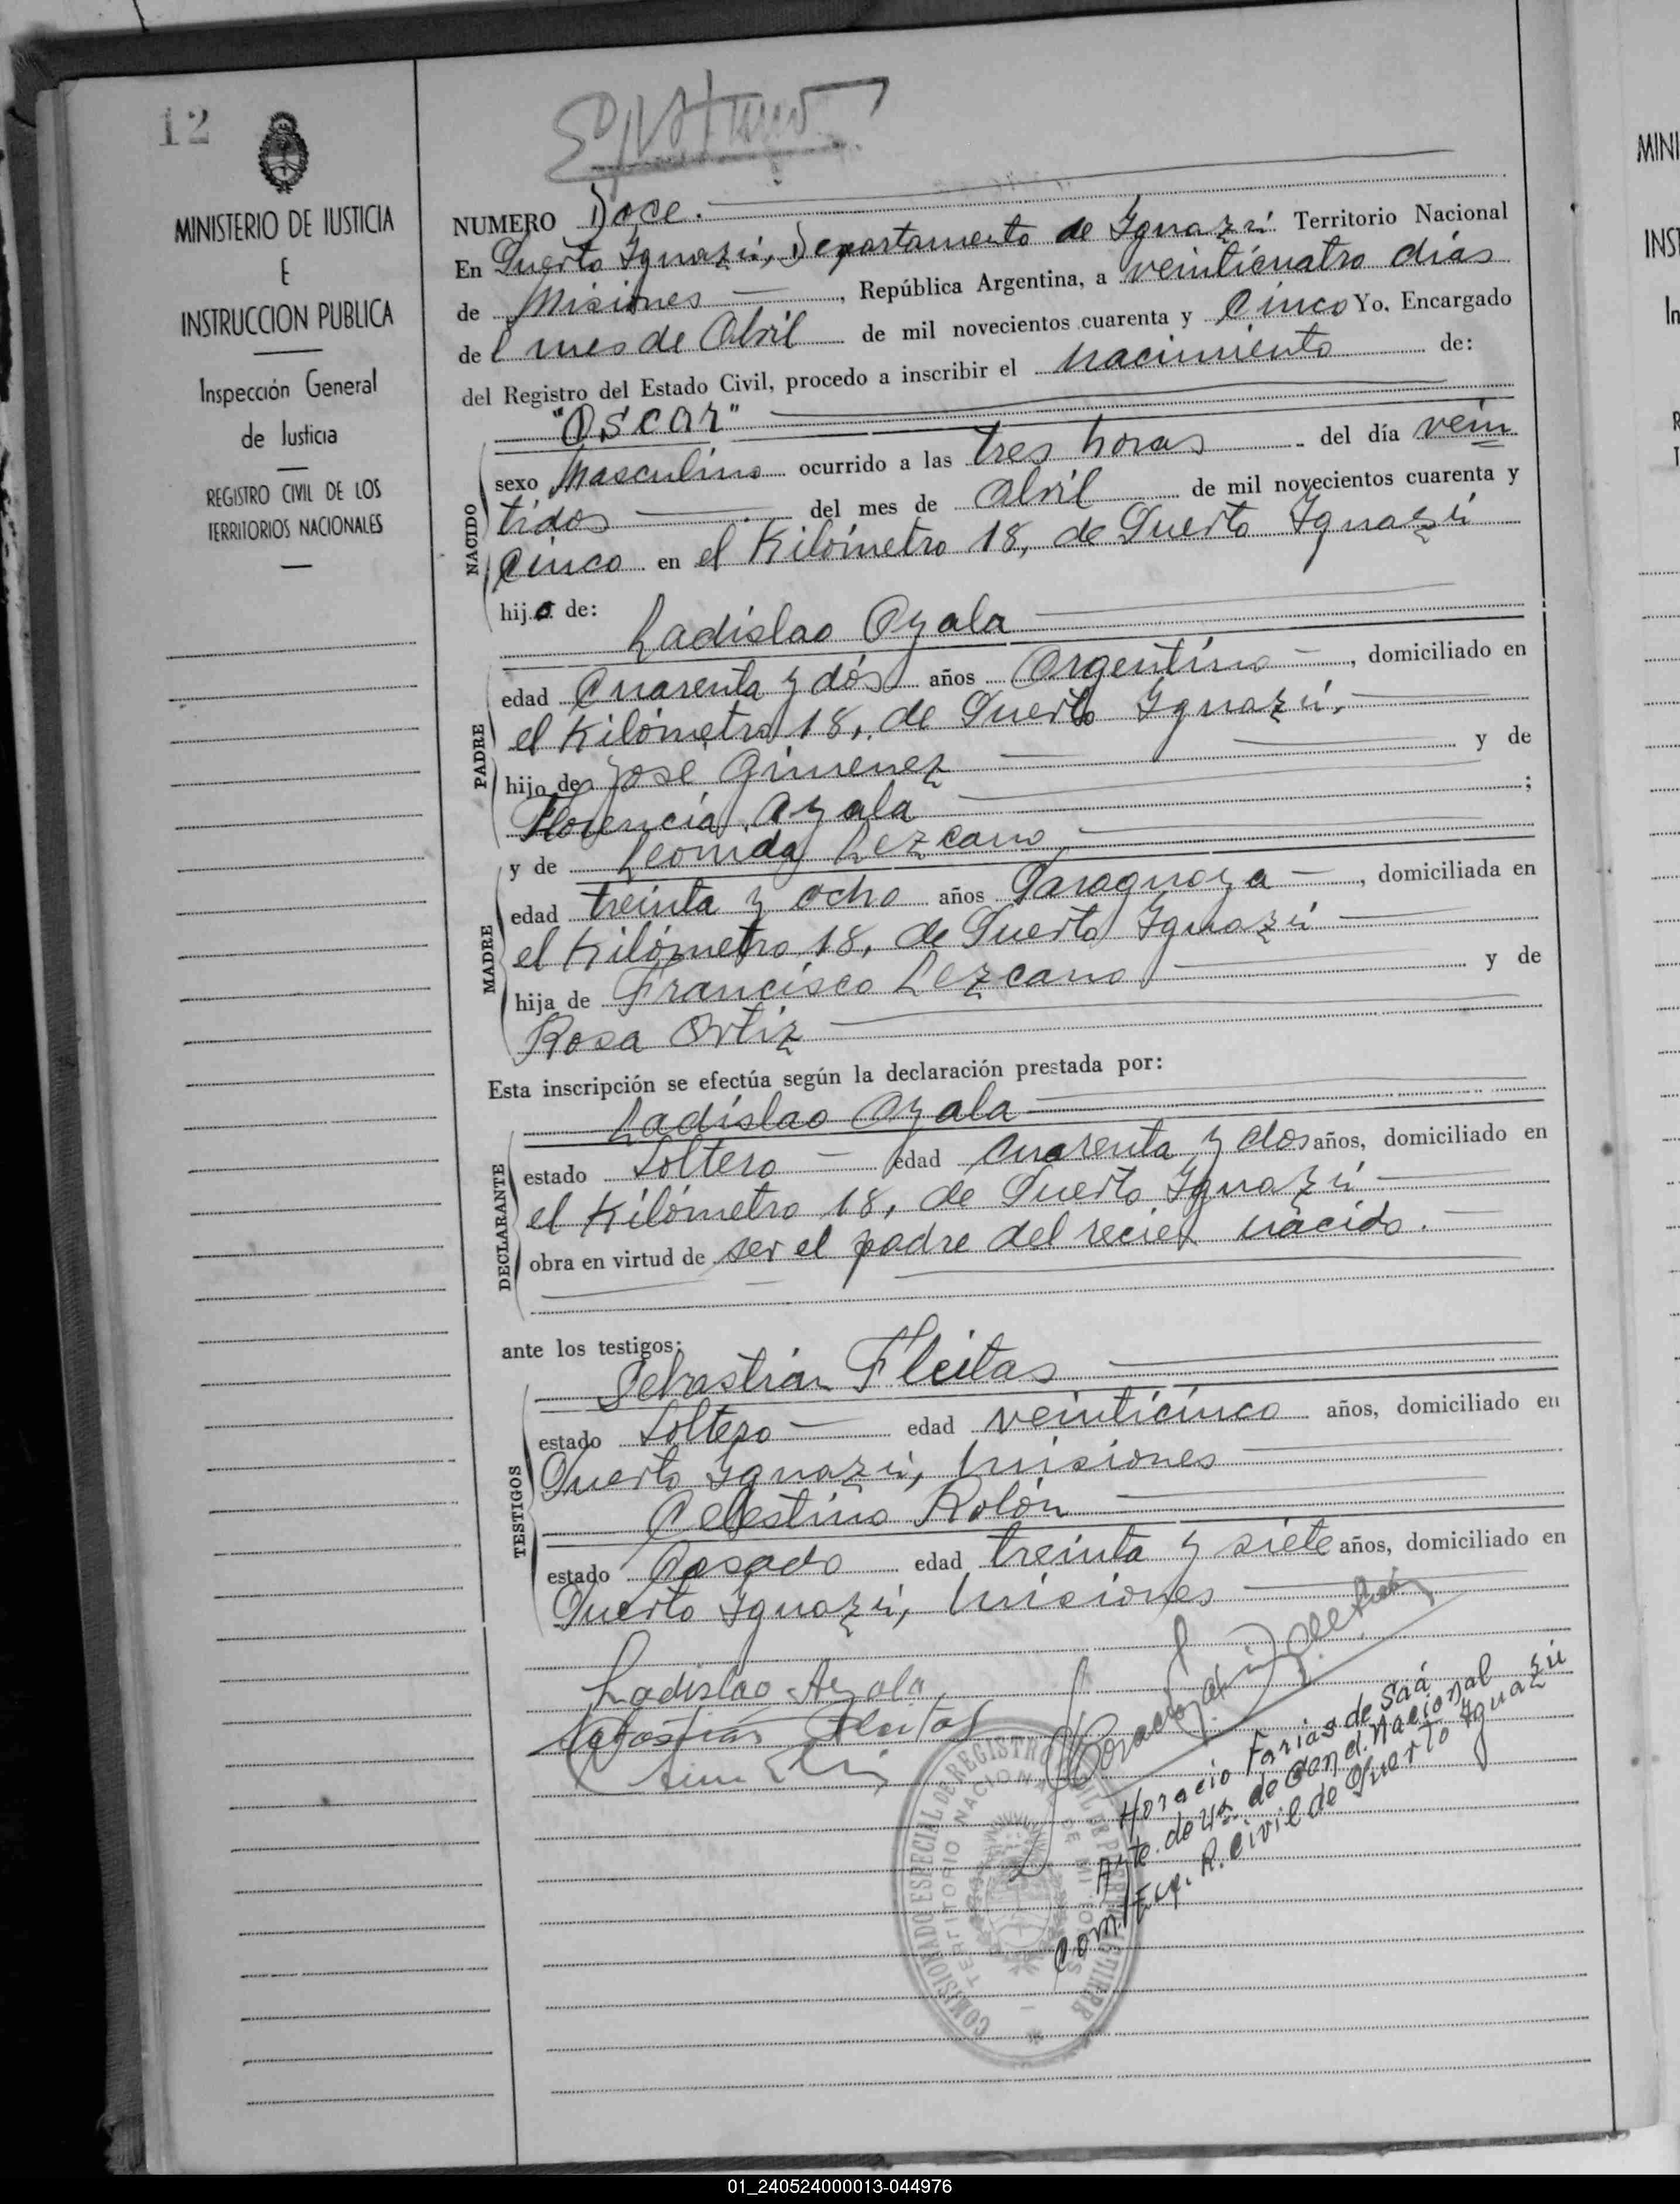 12
MINISTERIO DE JUSTICIA
E
INSTRUCCION PUBLICA
Inspección General
de Justicia
REGISTRO CIVIL DE LOS
TERRITORIOS NACIONALES
NUMERO Doce.
En Puerto Iguazú, Departamento de Iguazú Territorio Nacional
de Misiones, República Argentina, a veinticuatro días
del mes de Abril de mil novecientos cuarenta y Cinco Yo, Encargado
del Registro del Estado Civil, procedo a inscribir el nacimiento de:
"Oscar"
NACIDO
sexo Masculino ocurrido a las tres horas del día vein
tidos del mes de Abril de mil novecientos cuarenta y
Cinco en el Kilómetro 18, de Puerto Iguazú
hijo de:
Ladislao Ayala
PADRE
edad Cuarenta y dós años Argentino, domiciliado en
el Kilómetro 18, de Puerto Iguazú.
hijo de José Gimenez y de
Florencia Ayala ;
y de Leonida Lezcano
MADRE
edad treinta y ocho años Paraguaya, domiciliada en
el Kilómetro 18, de Puerto Iguazú
hija de Francisco Lezcano y de
Rosa Ortiz
Esta inscripción se efectúa según la declaración prestada por:
Ladislao Ayala
DECLARANTE
estado Soltero edad cuarenta y dos años, domiciliado en
el Kilómetro 18, de Puerto Iguazú
obra en virtud de ser el padre del recien nacido.
ante los testigos:
Sebastián Fleitas
TESTIGOS
estado Soltero edad veinticinco años, domiciliado en
Puerto Iguazú, Misiones
Celestino Rolón
estado Casado edad treinta y siete años, domiciliado en
Puerto Iguazú, Misiones
Ladislao Ayala
Sebastian Fleitas
Horacio Farias de Saá
Ayte. de 4ª. de Gend. Nacional
Com. Esp. R. Civil de Puerto Iguazú
COMISIONADO ESPECIAL DE REGISTRO CIVIL
TERRITORIO NACIONAL DE MISIONES
MINI
INST
01_240524000013-044976